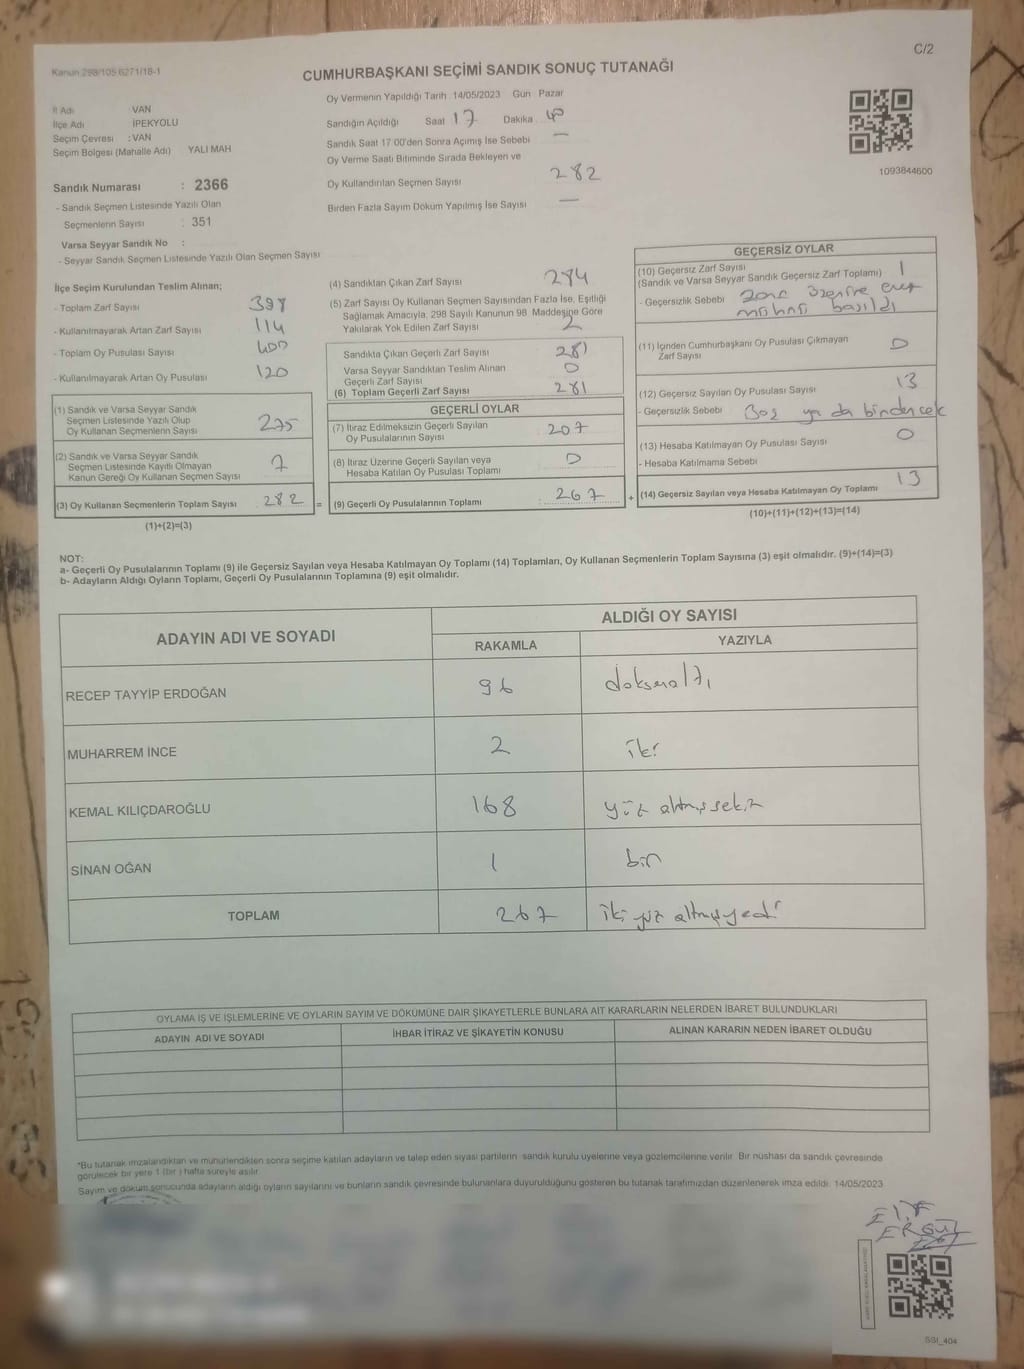 C/2
Kanun 298/105 6271/18-1
CUMHURBAŞKANI SEÇİMİ SANDIK SONUÇ TUTANAĞI
İl Adı VAN
İlçe Adı İPEKYOLU
Seçim Çevresi : VAN
Seçim Bölgesi (Mahalle Adı) YALI MAH
Sandık Numarası : 2366
- Sandık Seçmen Listesinde Yazılı Olan
Seçmenlerin Sayısı : 351
Varsa Seyyar Sandık No :
- Seyyar Sandık Seçmen Listesinde Yazılı Olan Seçmen Sayısı
Oy Vermenin Yapıldığı Tarih 14/05/2023 Gün Pazar
Sandığın Açıldığı Saat 17 Dakika
Sandık Saat 17:00'den Sonra Açımış İse Sebebi —
Oy Verme Saati Bitiminde Sırada Bekleyen ve
Oy Kullandırılan Seçmen Sayısı 282
Birden Fazla Sayım Döküm Yapılmış İse Sayısı —
1093844600
İlçe Seçim Kurulundan Teslim Alınan;
- Toplam Zarf Sayısı 398
- Kullanılmayarak Artan Zarf Sayısı 114
- Toplam Oy Pusulası Sayısı 400
- Kullanılmayarak Artan Oy Pusulası 120
(1) Sandık ve Varsa Seyyar Sandık
Seçmen Listesinde Yazılı Olup
Oy Kullanan Seçmenlerin Sayısı 275
(2) Sandık ve Varsa Seyyar Sandık
Seçmen Listesinde Kayıtlı Olmayan
Kanun Gereği Oy Kullanan Seçmen Sayısı 7
(3) Oy Kullanan Seçmenlerin Toplam Sayısı : 282 =
(1)+(2)=(3)
(4) Sandıktan Çıkan Zarf Sayısı 284
(5) Zarf Sayısı Oy Kullanan Seçmen Sayısından Fazla İse, Eşitliği
Sağlamak Amacıyla, 298 Sayılı Kanunun 98. Maddesine Göre
Yakılarak Yok Edilen Zarf Sayısı 2
Sandıkta Çıkan Geçerli Zarf Sayısı 281
Varsa Seyyar Sandıktan Teslim Alınan
Geçerli Zarf Sayısı 0
(6) Toplam Geçerli Zarf Sayısı 281
GEÇERLİ OYLAR
(7) İtiraz Edilmeksizin Geçerli Sayılan
Oy Pusulalarının Sayısı 207
(8) İtiraz Üzerine Geçerli Sayılan veya
Hesaba Katılan Oy Pusulası Toplamı 0
(9) Geçerli Oy Pusulalarının Toplamı : 267 +
GEÇERSİZ OYLAR
(10) Geçersiz Zarf Sayısı
(Sandık ve Varsa Seyyar Sandık Geçersiz Zarf Toplamı) 1
- Geçersizlik Sebebi üzerine evet
mührü basıldı
(11) İçinden Cumhurbaşkanı Oy Pusulası Çıkmayan
Zarf Sayısı 0
(12) Geçersiz Sayılan Oy Pusulası Sayısı 13
- Geçersizlik Sebebi Boş ya da birden çok
(13) Hesaba Katılmayan Oy Pusulası Sayısı 0
- Hesaba Katılmama Sebebi
(14) Geçersiz Sayılan veya Hesaba Katılmayan Oy Toplamı 13
(10)+(11)+(12)+(13)=(14)
NOT:
a- Geçerli Oy Pusulalarının Toplamı (9) ile Geçersiz Sayılan veya Hesaba Katılmayan Oy Toplamı (14) Toplamları, Oy Kullanan Seçmenlerin Toplam Sayısına (3) eşit olmalıdır. (9)+(14)=(3)
b- Adayların Aldığı Oyların Toplamı, Geçerli Oy Pusulalarının Toplamına (9) eşit olmalıdır.
ADAYIN ADI VE SOYADI ALDIĞI OY SAYISI
RAKAMLA YAZIYLA
RECEP TAYYİP ERDOĞAN 96 doksanaltı
MUHARREM İNCE 2 iki
KEMAL KILIÇDAROĞLU 168 yüz altmışsekiz
SİNAN OĞAN 1 bir
TOPLAM 267 iki yüz altmışyedi
OYLAMA İŞ VE İŞLEMLERİNE VE OYLARIN SAYIM VE DÖKÜMÜNE DAİR ŞİKAYETLERLE BUNLARA AİT KARARLARIN NELERDEN İBARET BULUNDUKLARI
ADAYIN ADI VE SOYADI İHBAR İTİRAZ VE ŞİKAYETİN KONUSU ALINAN KARARIN NEDEN İBARET OLDUĞU
*Bu tutanak imzalandıktan ve mühürlendikten sonra seçime katılan adayların ve talep eden siyasi partilerin sandık kurulu üyelerine veya gözlemcilerine verilir. Bir nüshası da sandık çevresinde
görülecek bir yere 1 (bir ) hafta süreyle asılır.
Sayım ve döküm sonucunda adayların aldığı oyların sayılarını ve bunların sandık çevresinde bulunanlara duyurulduğunu gösteren bu tutanak tarafımızdan düzenlenerek imza edildi. 14/05/2023
ELİF
ERGÜL
SSI_404